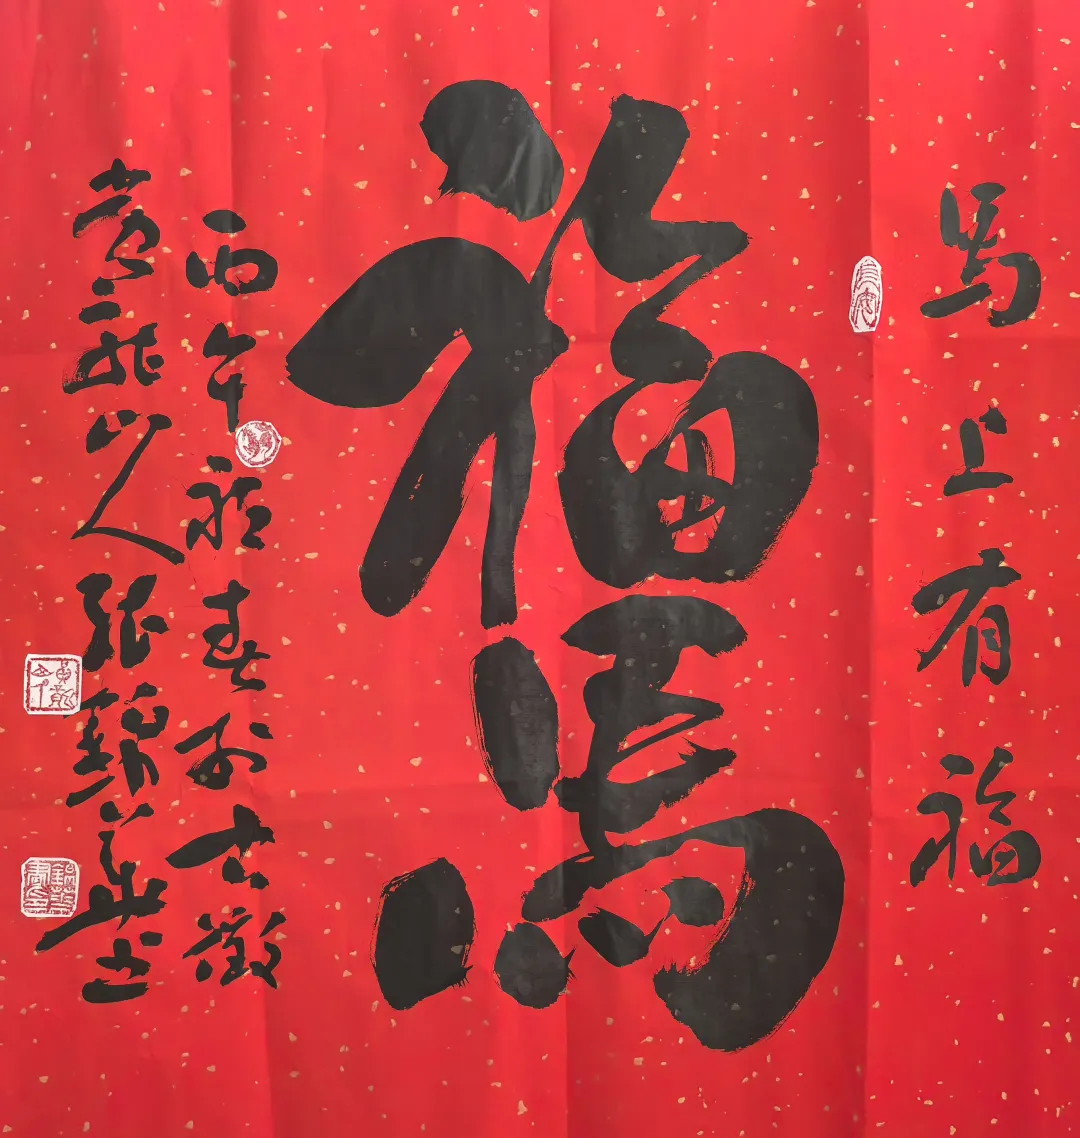 馬上有福
福
馬
丙午初春於古徽
黄龍山人張錦華書